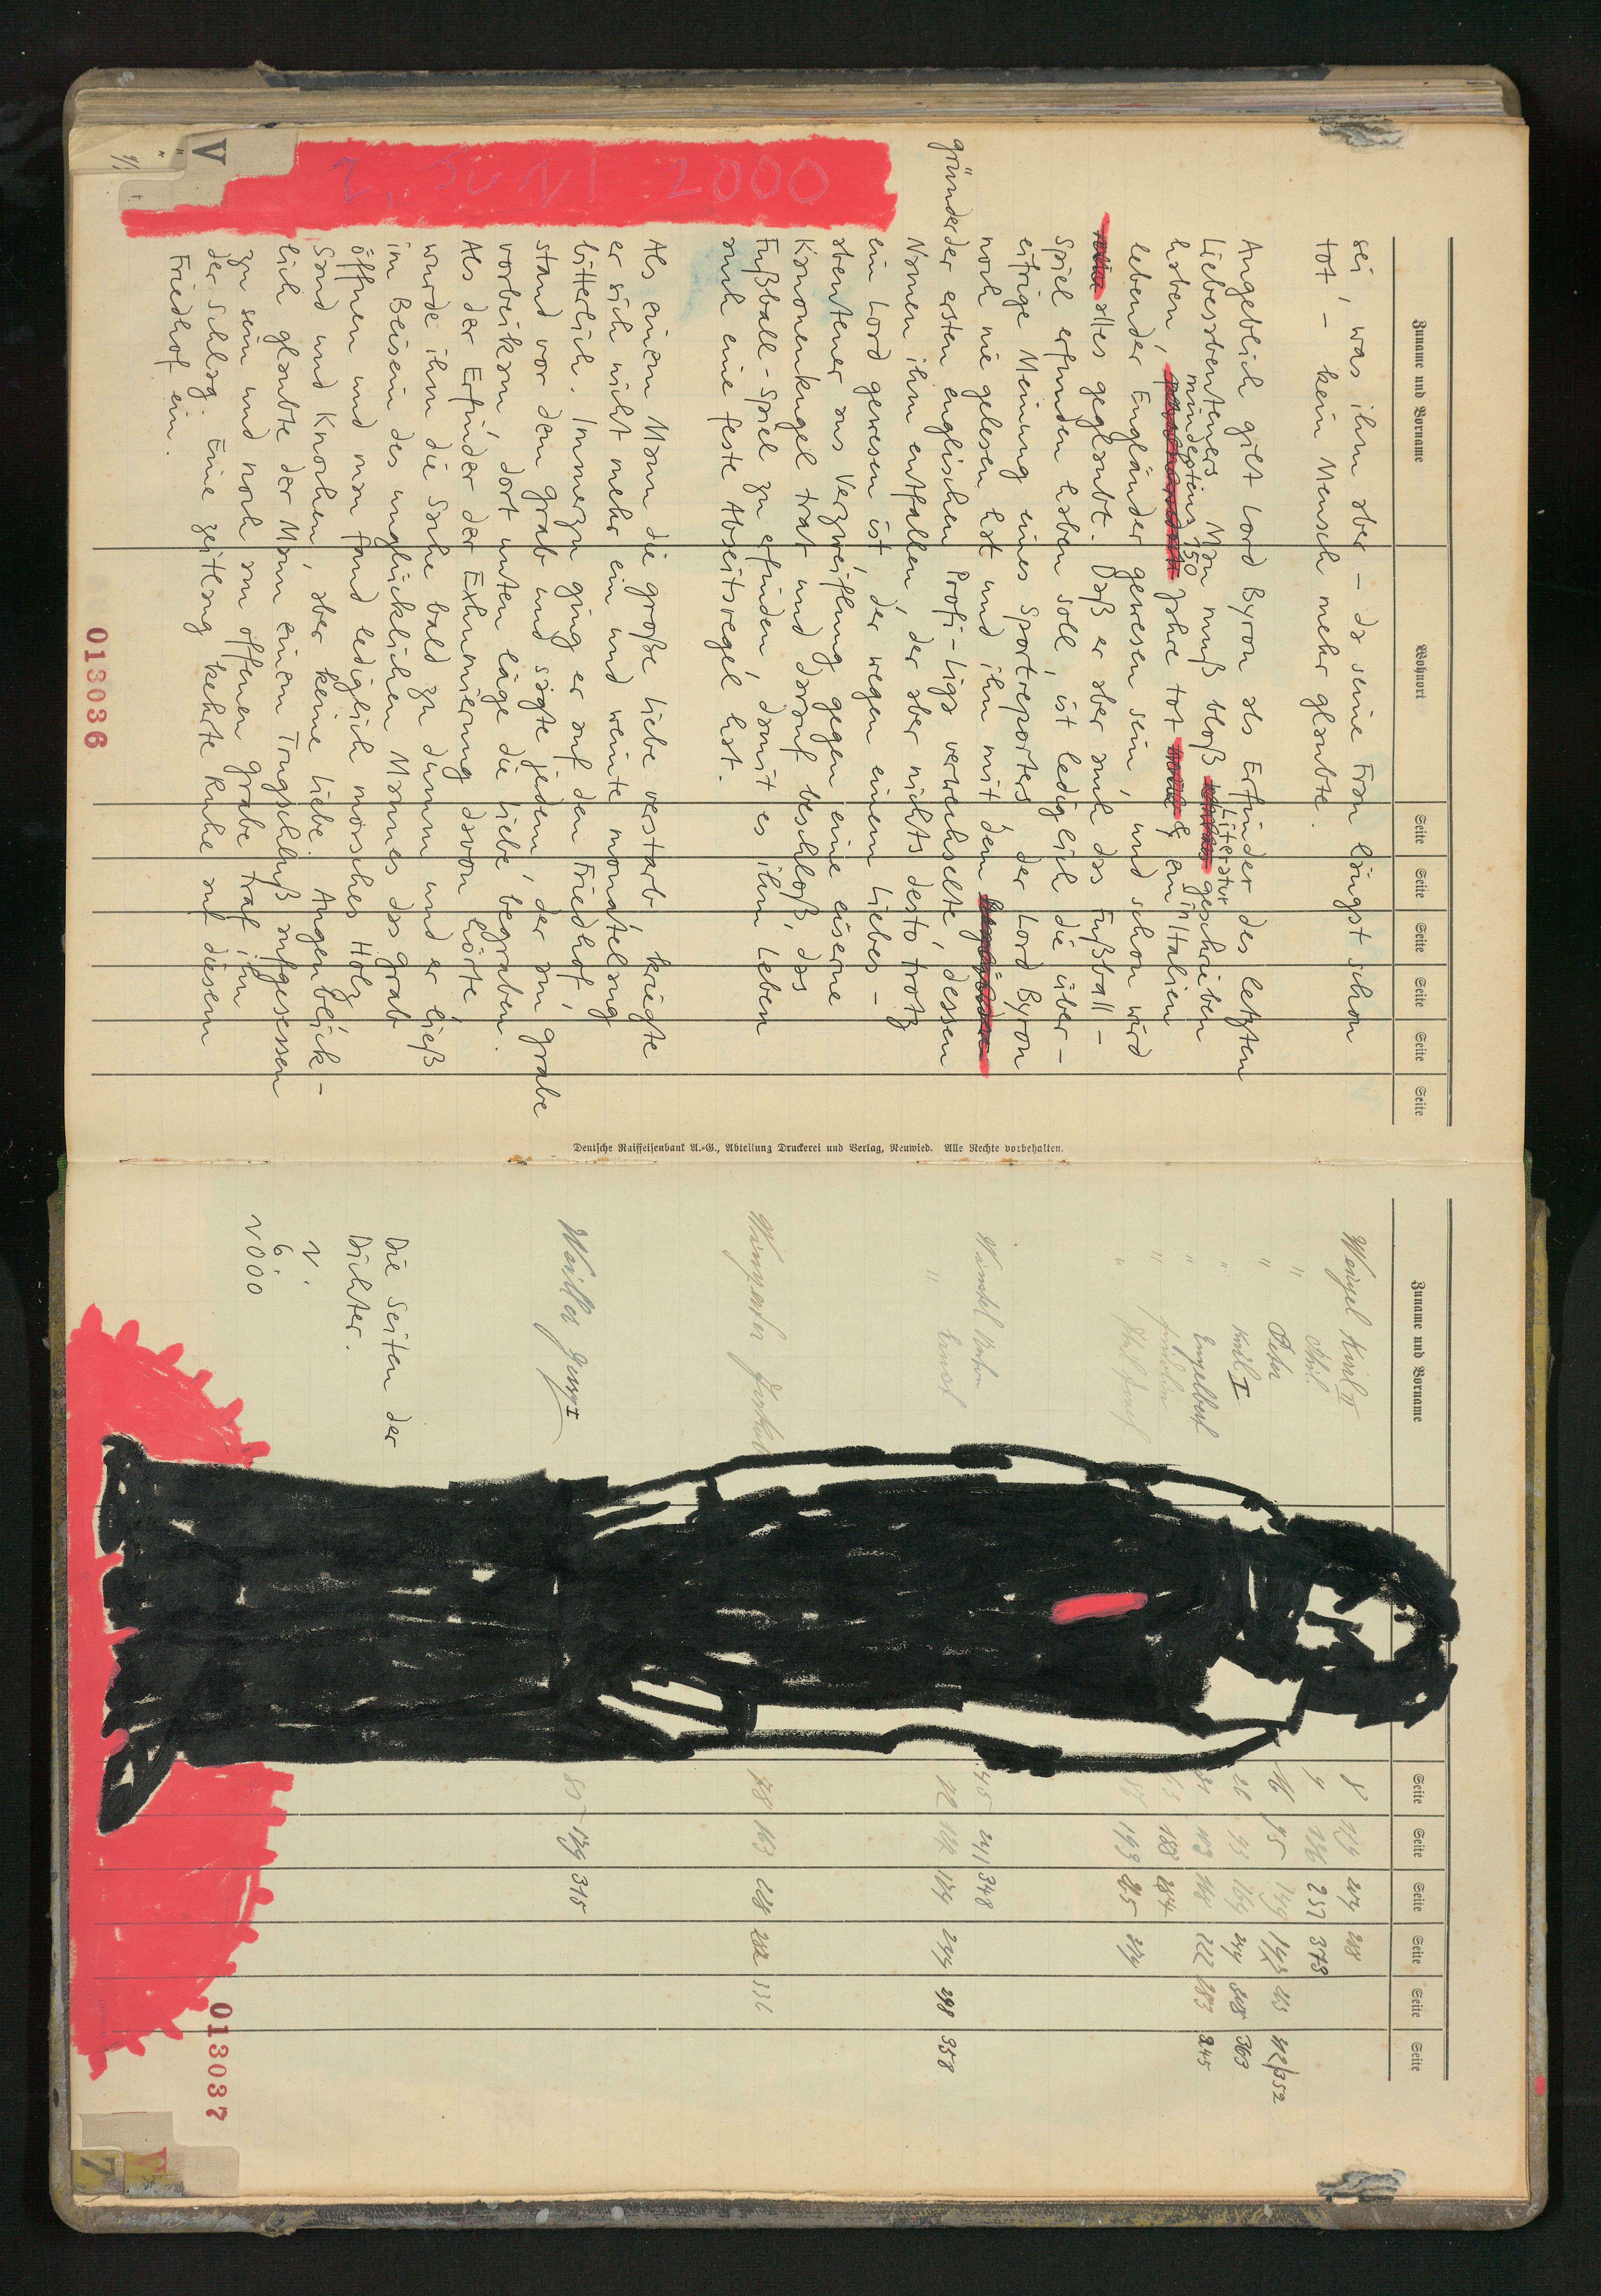 Zuname und Vorname Wohnort Seite Seite Seite Seite Seite Seite
sei, was ihm aber – da seine Frau längst schon
tot, – kein Mensch mehr glaubte.
Angeblich gilt Lord Byron als Erfinder des letzten
Literatur
Liebesabenteuers. Man muß bloß geschrieben
mindestens 150 in
haben, Jahre tot & ein Italien
lebender Engländer gewesen sein, und schon wird
alles geglaubt. Daß er aber auch das Fußball-
Spiel erfunden haben soll, ist lediglich die über-
eifrige Meinung eines Sportreporters der Lord Byron
noch nie gelesen hat und ihn mit dem
gründer der ersten englischen Profi-Liga verwechselte, dessen
Namen ihm entfallen, der aber nichts desto trotz
ein Lord gewesen ist, der wegen einem Liebes-
abenteuer aus Verzweiflung gegen eine eiserne
Kanonenkugel trat und darauf beschloß, das
Fußball-Spiel zu erfinden, damit es ihm Leben
auch eine feste Abseitsregel hat.
Als einem Mann die große Liebe verstarb, kriegte
er sich nicht mehr ein und weinte monatelang
bitterlich. Immerzu ging er auf den Friedhof,
stand vor dem Grab und sagte jedem, der am Grabe
vorbeikam, dort unten läge die Liebe begraben.
Als der Erfinder der Exhumierung davon hörte
wurde ihm die Sache bald zu dumm und er ließ
im Beisein des unglücklichen Mannes das Grab
öffnen und man fand lediglich morsches Holz
Sand und Knochen, aber keine Liebe. Augenblick-
lich glaubte der Mann einem Trugschluß aufgesessen
zu sein und noch am offenen Grabe traf ihn
der Schlag. Eine zeitlang kehrte Ruhe auf diesem
Friedhof ein.
2. JUNI 2000
V
013036
Deutsche Raiffeisenbank A.-G., Abteilung Druckerei und Verlag, Neuwied. Alle Rechte vorbehalten.
Zuname und Vorname Seite Seite Seite Seite Seite Seite
Weingel Karl II 8 119 204 268
" 9 136 257 373
" Peter 16 95 149 193
" Karl I 26 93 164 244 308 363
" Engelbert 222 283 345
" 188 254
" 193 265 324
Anton 45 241 348
" Ernst 298 358
78 163 228 282 336
129 315
Die Seiten der
Dichter.
2.
6.
2000
013037
V
7